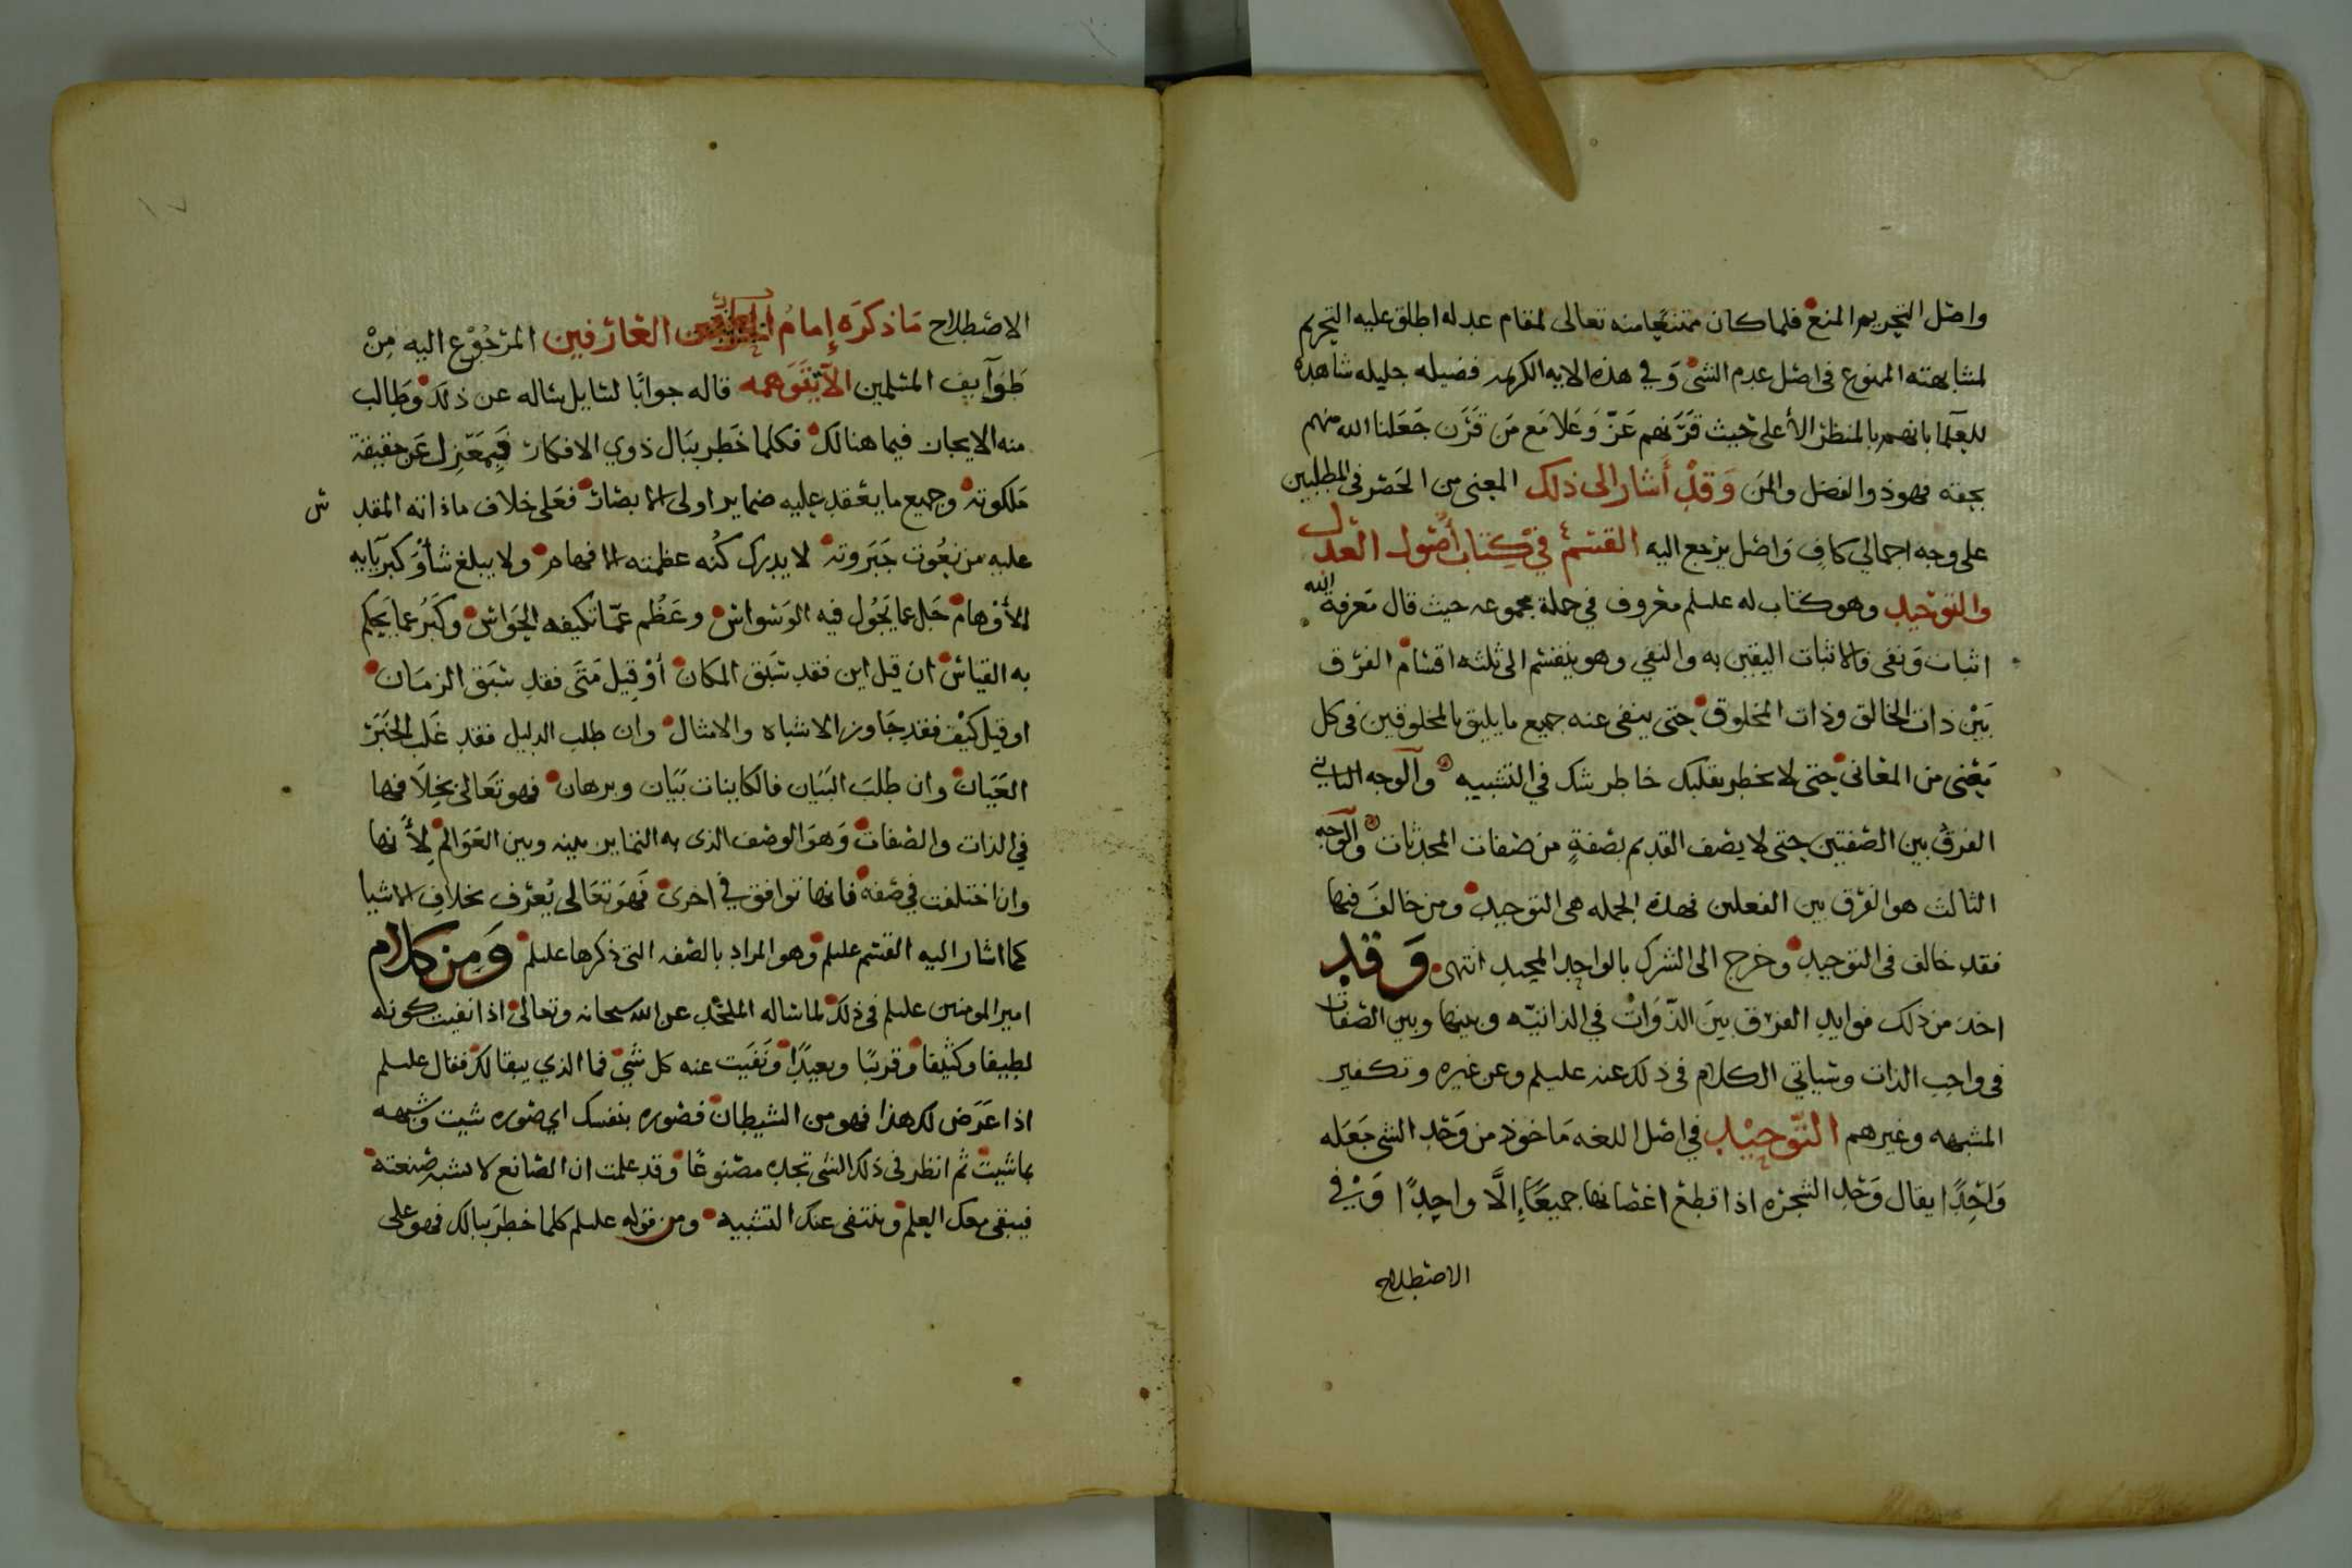 واصل التحريم المنع فلما كان ممتنعا منه تعالى لمقام عدله اطلق عليه التحريم
لمشابهته الممنوع في اصل عدم الشئ وَ في هذه الايه الكريمه فضيله جليله شاهده
للعلما بانهم بالمنظر الأعلى حيث قَرَنهم عَزّ وَعَلا مَع مَن قَرَن جَعَلنا الله منهم
بحقه فهو ذو الفضل والمن وَقَدْ أَشار الى ذلك المعنى من الحَصْر في المطلبين
على وجه اجمالي كافِ وَاصل يرجع اليه القسم في كتاب أصُول العدل
والتوحيد وهو كتاب له عليلم معروف في جملة مجموعه حيث قال مَعرفة الله
اثبات وَ نفى فالاثبات اليقين به والنفي وهو ينقسم الى ثلثه اقسام الفرق
بَيْن ذات الخالق وذات المخلوق حتى ينفى عنه جميع ما يليق بالمخلوقين في كل
مَعْنى من المعَانى حتى لا يخطر بقلبك خاطر شك في التشبيه وآلوجه الثاني
الفرق بين الصفتين حتى لا يصف القديم بصفةٍ من صفات المحدثات وآلوجه
الثالث هو الفرق بين الفعلين فهذه الجمله هى التوحيد ومن خالفَ فيها
فقد خالف فى التوحيد وخرج الى الشرك بالواحد المجيد انتهى وَقَد
اخذ من ذلك فوايد الفرق بينَ الذّوَاتْ في الذاتيّه وبينها وبين الصفات
في واجب الذات وسياتي الكلام فى ذلك عنه عليلم وعن غيره وتكفير
المشبهه وغيرهم التّوحيْد في اصل اللغه مَاخوذ من وَحّد الشى جَعَله
وَاحِدًا يقال وَحّد الشجره اذا قطع اغصانها جميعًا إلَّا واحِدًا وَ في
الاصطلاح
الاصطلاح مَا ذكرَه إمامُ العارفين المرْجُوْع اليه مِنْ
طَوَآيف المسْلمين الاّتتَوَهمه قاله جوابًا لسَايل سَاله عن ذلك وَطَالب
منه الايجاز فيما هنالك فكلما خَطر ببَال ذوي الافكار فبِمَعْزِل عَن حقيقة
مَلكوته وجميع ما يعْقد عليه ضماير اولى الابصار فعَلى خلاف ماذاته المقد س
عليه من نعُوت جَبَروته لا يدرك كُنه عظمته الافهام ولا يبلغ شأوَ كبريَآيه
الأوْهَام جَل عما يَجُول فيه الوَسْواسْ وعَظُم عمّا تكيفه الحَوَاس وكَبُر عما يَحكم
به القياسْ ان قيل اين فقد سَبَق المكان أوْ قِيل مَتَى فقد سَبَق الزمَان
او قيل كيْف فقد جَاوز الاشباه والامثال وان طلب الدليل فقد غَلب الخَبَرَ
العَيَان وان طلبَ البَيَان فالكاينات بَيَان وبرهان فهو تَعَالى بخِلَافها
في الذات والصفات وَهوَ الوصْف الذى به التمايز بينه وبين العَوَالم لِأَنها
وان اختلفت في صفه فانها توافق في اخرى فَهوَ تعَالى يُعرْف بخلاف الاشيا
كما اشار اليه القسم عليلم وهو المراد بالصفه التى ذكرها عليلم وَمِنْ كلام
امير المومنين عليلم في ذلك لما سَاله الملحد عن الله سبحانه وتعالى اذا نفيت كونه
لطيفا وكثيفا وَ قريبًا وبعيدًا وَنَفَيت عنه كل شَئ فما الذي يبقا لك فقال عليلم
اذا عَرَض لك هذا فهو من الشيطان فصوره بنفسك اي صوره شيت وَشبهه
بما شيت ثم انظر في ذلك الشى تجده مصنوعًا وَقد علمت ان الصَانع لا يشبه صنعته
فيبقى معك العلم وينتفى عنك التشبيه ومن قوله عليلم كلما خطرَ ببالك فهو على